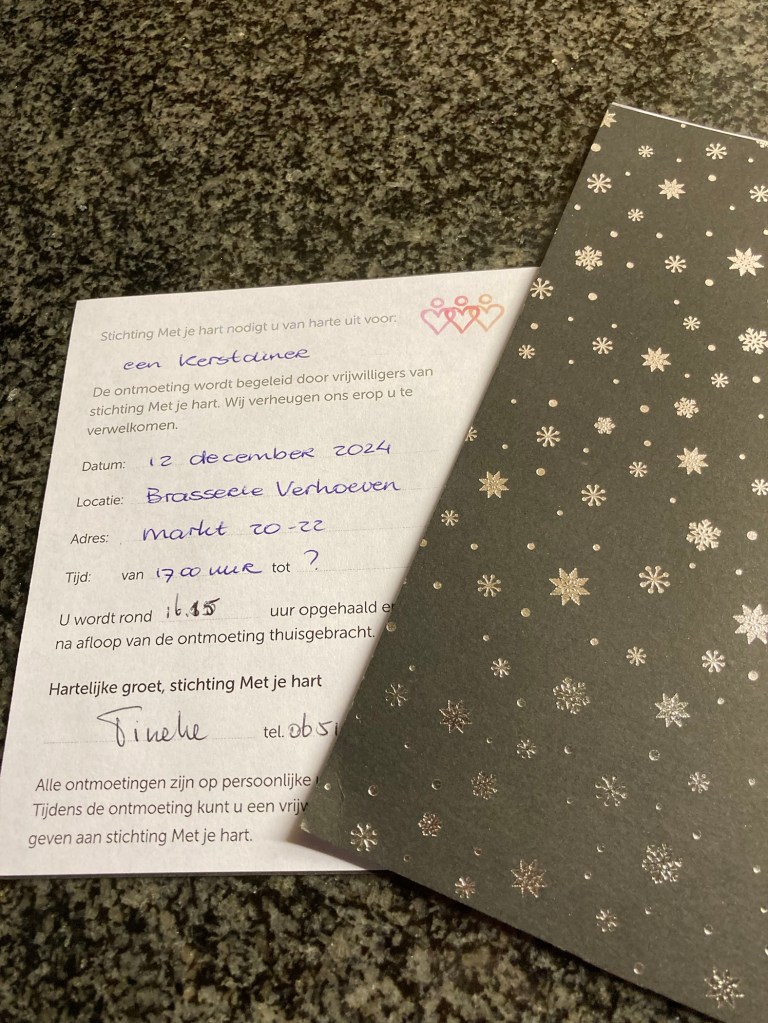 Stichting Met je hart nodigt u van harte uit voor:
een Kerstdiner
De ontmoeting wordt begeleid door vrijwilligers van
stichting Met je hart. Wij verheugen ons erop u te
verwelkomen.
Datum: 12 december 2024
Locatie: Brasserie Verhoeven
Adres: markt 20-22
Tijd: van 1700 uur tot ?
U wordt rond 16.15 uur opgehaald e
na afloop van de ontmoeting thuisgebracht.
Hartelijke groet, stichting Met je hart
Tineke tel. 065
Alle ontmoetingen zijn op persoonlijke
Tijdens de ontmoeting kunt u een vrijw
geven aan stichting Met je hart.